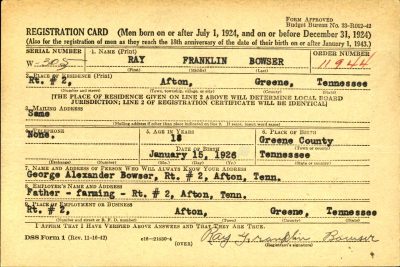 FORM APPROVED
Budget Bureau No. 33-R012-42
REGISTRATION CARD (Men born on or after July 1, 1924, and on or before December 31, 1924)
(Also for the registration of men as they reach the 18th anniversary of the date of their birth on or after January 1, 1943.)
SERIAL NUMBER
1. NAME (Print)
ORDER NUMBER
W-305
RAY FRANKLIN BOWSER
11944
(First) (Middle) (Last)
2. PLACE OF RESIDENCE (Print)
Rt. # 2, Afton, Greene, Tennessee
(Number and street) (Town, township, village, or city) (County) (State)
[THE PLACE OF RESIDENCE GIVEN ON LINE 2 ABOVE WILL DETERMINE LOCAL BOARD
JURISDICTION; LINE 2 OF REGISTRATION CERTIFICATE WILL BE IDENTICAL]
3. MAILING ADDRESS
Same
[Mailing address if other than place indicated on line 2. If same, insert word same]
4. TELEPHONE
5. AGE IN YEARS
6. PLACE OF BIRTH
None.
18
Greene County
DATE OF BIRTH
(Town or county)
January 15, 1926
Tennessee
(Mo.) (Day) (Yr.)
(State or country)
7. NAME AND ADDRESS OF PERSON WHO WILL ALWAYS KNOW YOUR ADDRESS
George Alexander Bowser, Rt. # 2, Afton, Tenn.
8. EMPLOYER'S NAME AND ADDRESS
Father - farming - Rt. # 2, Afton, Tenn.
9. PLACE OF EMPLOYMENT OR BUSINESS
Rt. # 2, Afton, Greene, Tennessee
(Number and street or R. F. D. number) (Town) (County) (State)
I AFFIRM THAT I HAVE VERIFIED ABOVE ANSWERS AND THAT THEY ARE TRUE.
DSS Form 1 (Rev. 11-16-42)
(OVER)
Ray Franklin Bowser